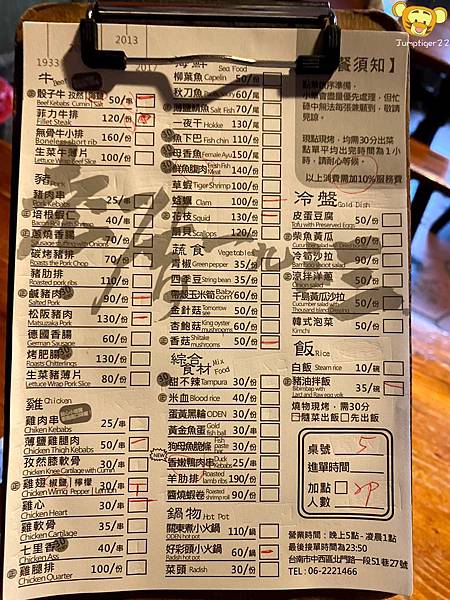 Jumptiger22
1933
2013
2017
牛 Beef
骰子牛 孜然|海鹽 50/串
Beef Kebabs Cumin | Salt
菲力牛排 120/份
Fillet Steak
無骨牛小排 160/份
Boneless short rib
生菜牛薄片 100/份
Lettuce Wrap Beef Slice
豬 Pork
豬肉串 25/串
Pork Kebabs
培根蝦仁 40/串
Bacon Rolled in Shrimp
蔥燒香腸 70/份
Sausage stuffing with Onions
碳烤豬排 70/份
Roasts the Pork Chop
豬肋排 110/份
Roasted pork ribs
鹹豬肉 90/份
Salted Pork
松阪豬肉 110/份
Matsuzaka Pork
德國香腸 60/份
German Sausage
烤肥腸 130/份
Roasts Chitterlings
生菜豬薄片 80/份
Lettuce Wrap Pork Slice
雞 Chicken
雞肉串 25/串
Chicken Kebabs
薄鹽雞腿肉 50/串
Chicken Thigh Kebabs
孜然膝軟骨 30/份
Chicken Knee Cartilage with Cumin
雞翅 椒鹽|檸檬 30/串
Chicken Wing Pepper | Lemon
雞心 30/串
Chicken Heart
雞軟骨 35/串
Chicken Cartilage
七里香 40/串
Chicken Ass
雞腿排 100/份
Chicken Quarter
海鮮 Sea Food
柳葉魚 Capelin 50/份
秋刀魚 60/尾
薄鹽鯖魚 Salt Fish 70/份
一夜干 Hokke 130/尾
魚下巴 Fish chin 110/份
母香魚 Female Ayu 150/尾
鮮魚腹肉 Fresh Fish Meat 140/份
草蝦 Tiger Shrimp 100/份
蛤蠣 Clam 100/份
花枝 Squid 130/份
扇貝 Scallops 120/份
蔬食 Vegetables
青椒 Green pepper 35/份
四季豆 String bean 35/份
帶殼玉米筍 corn 60/份
金針菇 Tomorrow see 50/份
杏鮑菇 King oyster mushrooms 60/份
香菇 Shiitake mushrooms 50/份
綜合食材 Mix Food
甜不辣 Tampura 30/份
米血 Blood rice 40/份
蛋黃黑輪 ODEN 30/份
黃金魚蛋 Gold fish ball 30/串
狗母魚脆條 Fish paste bar 30/份
NEW
香嫩鴨肉串 Duck Kebabs 25/串
羊肋排 Roasted lamb ribs 190/份
醬燒蝦卷 Roasted shrimp roll 90/份
鍋物 Hot Pot
關東煮小火鍋 110/鍋
ODEN hot pot
好彩頭小火鍋 60/鍋
Radish hot pot
菜頭 Radish 30/份
餐須知】
點單依序準備,
小菜會盡量優先處理,但忙
碌中無法每張兼顧到,敬請
見諒。
現點現烤,均需30分出菜
點單平均出完時間為1小
時,請耐心等候。
以上消費需加10%服務費
冷盤 Cold Dish
皮蛋豆腐 50/份
Tofu with Preserved Eggs
柴魚黃瓜 60/份
冷筍沙拉 90/份
Bamboo shoot salad
涼拌洋蔥 50/份
Onion salad
千島黃瓜沙拉 50/份
Cucumber salad with Thousand Island Dressing
韓式泡菜 50/份
Kimchi
飯 Rice
白飯 Steam rice 10/碗
豬油拌飯 35/碗
Bibimbap with Lard and Raw egg yolk
燒物現烤,需30分
□隨菜出飯□先出飯
桌號 5
進單時間
加點
人數 2P
營業時間:晚上5點-凌晨1點
最後接單時間為23:50
台南市中西區北門路一段51巷27號
TEL:06-2221466